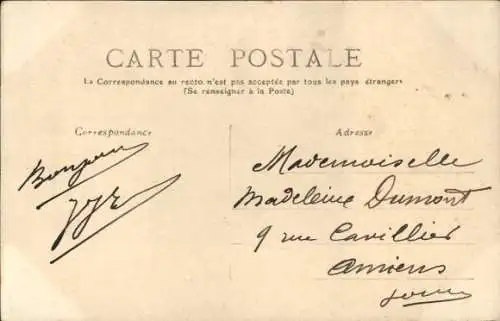 CARTE POSTALE
La Correspondance au recto n'est pas acceptée par tous les pays étrangers
(Se renseigner à la Poste)
Correspondance
Adresse
Bonjour
Mademoiselle
Madeleine Dumont
9 rue Cavillier
Amiens
Somme